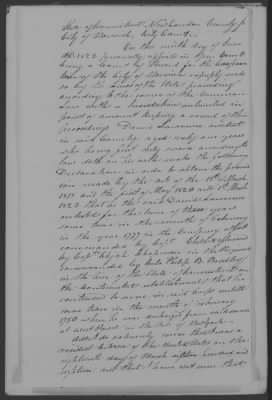 State of Connecticut New London County ss
City of Norwich City Court
On the ninth day of June
AD 1823 personally appeared in open Court
being a Court of Record for the
of the City of Norwich expressly made
so by the laws of the State proceeding
according to the course of the Common
Law with a Jurisdiction unlimited in
point of amount keeping a record of their
proceedings David Lawrence resident
in said County aged sixty one years
who being first duly sworn according to
law doth on his oath make the following
Declaration in order to obtain the provision
made by the acts of the 18th March
1818 and the first of May 1820 and 1st March
1823 that he the said David Lawrence
enlisted for the term of three years
some time in the month of February
in the year 1777 in the Company
commanded by Capt
by Capt Elijah Chapman in the Regiment
commanded by Col. Philip B. Bradley
in the line of the State of Connecticut on
the Continental establishment that he
continued to serve in said Corps until
some time in the month of February
1780 when he was discharged from
at West Point in the State of New York
And I do solemnly swear that I was a
resident Citizen of the United States on the
eighteenth day of March eighteen hundred and
eighteen and that I have not since that